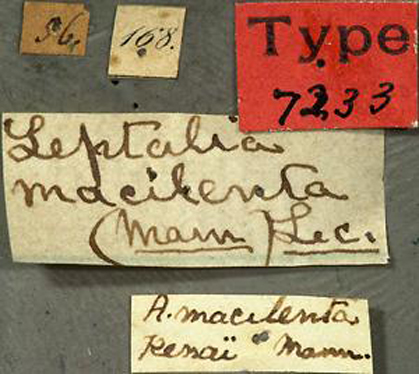 96.
168.
Type
7233
Leptalia
macilenta
(Mann.) Lec.
A. macilenta
Kenaï Mann.